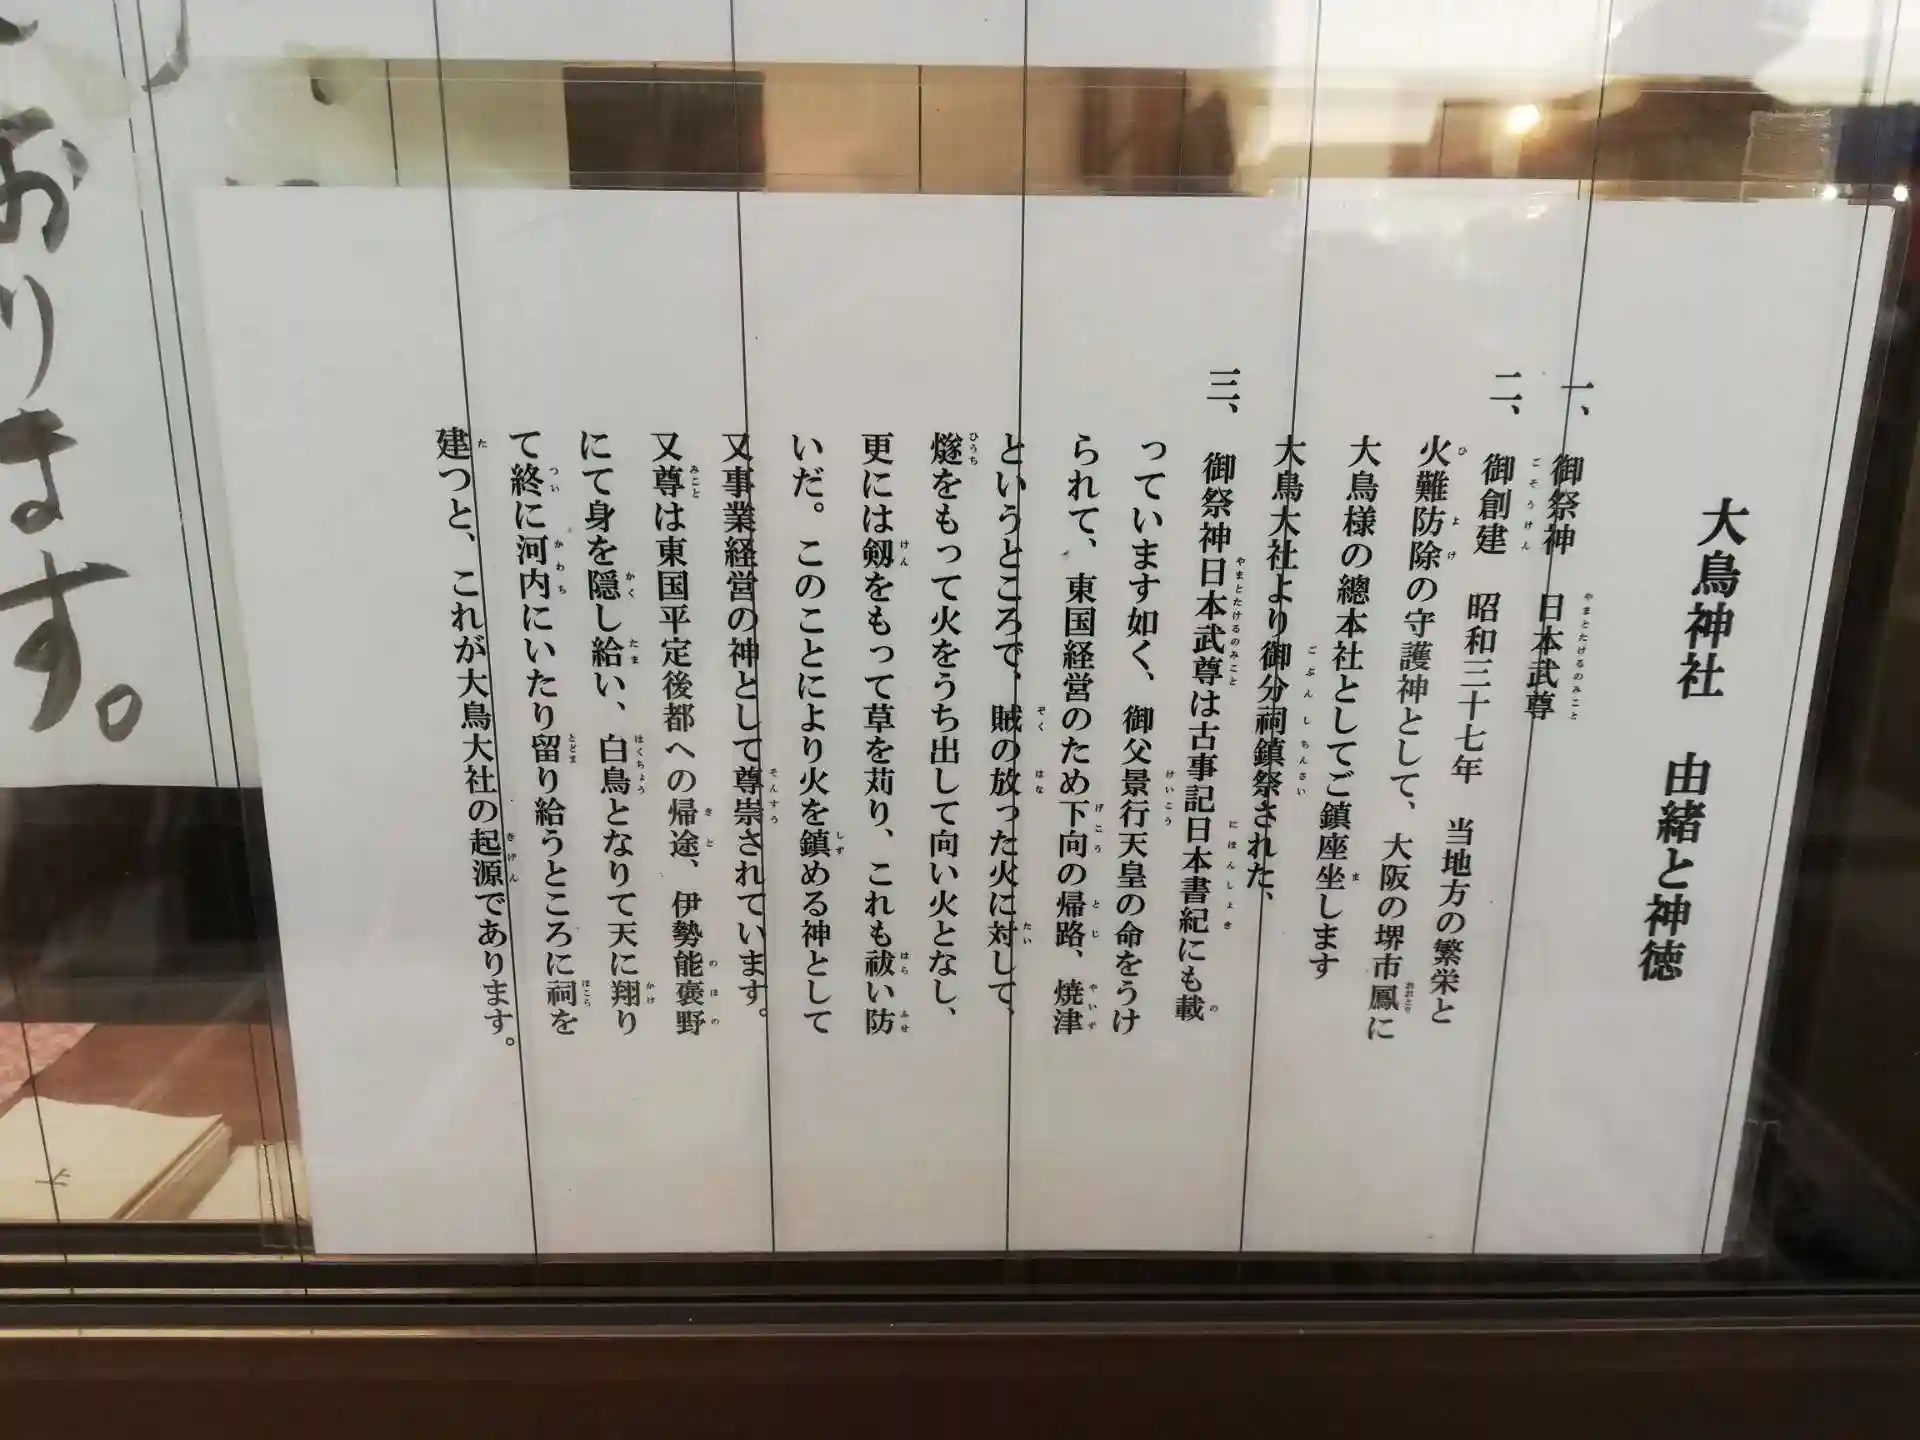 大鳥神社　由緒と神徳
一、　御祭神　日本武尊
二、　御創建　昭和三十七年　当地方の繁栄と
火難防除の守護神として、大阪の堺市鳳に
大鳥様の總本社としてご鎮座坐します
大鳥大社より御分祠鎮祭された、
三、　御祭神日本武尊は古事記日本書紀にも載
っています如く、御父景行天皇の命をうけ
られて、東国経営のため下向の帰路、焼津
というところで、賊の放った火に対して、
燧をもって火をうち出して向い火となし、
更には剱をもって草を苅り、これも祓い防
いだ。このことにより火を鎮める神として
又事業経営の神として尊崇されています。
又尊は東国平定後都への帰途、伊勢能褒野
にて身を隠し給い、白鳥となりて天に翔り
て終に河内にいたり留り給うところに祠を
建つと、これが大鳥大社の起源であります。
おります。